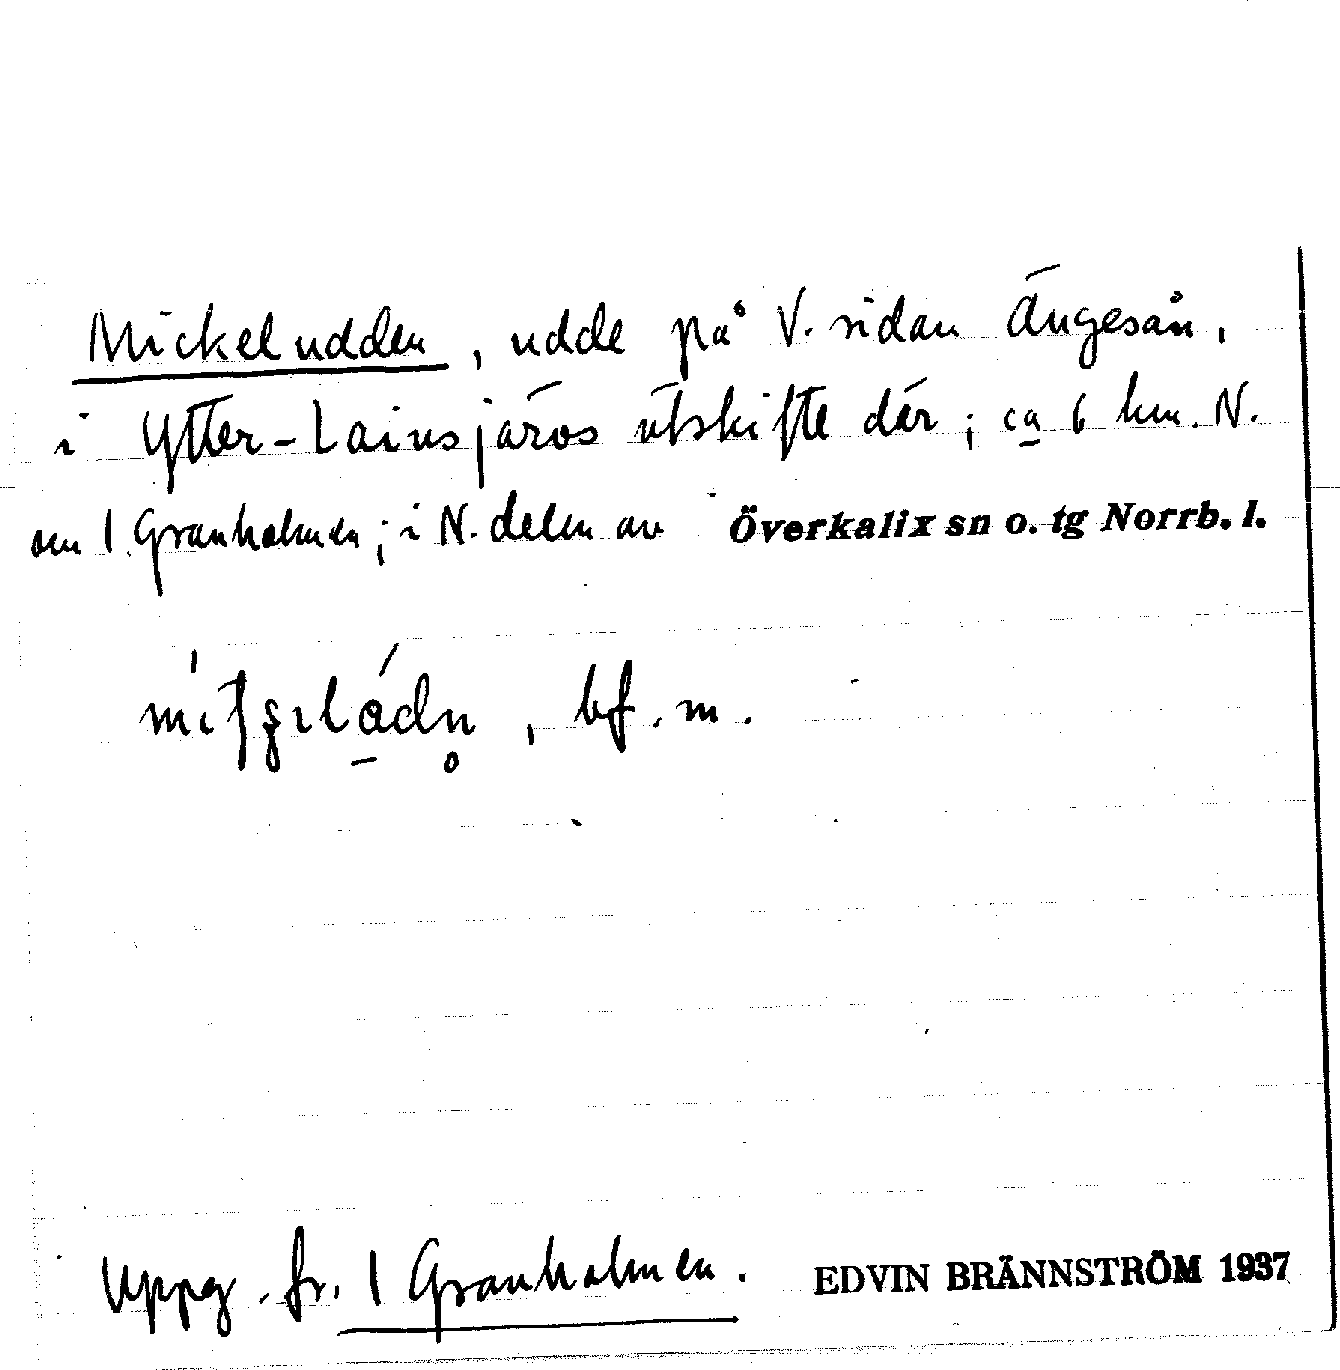 Mickeludden, udde på V. sidan Ängesån,
i Ytter-Lainsjärvs utskifte där; ca 6 km. N.
om 1 Granholmen; i N. delen av Överkalix sn o. tg Norrb. l.
, bf. m.
Uppg. fr. 1 Granholmen. EDVIN BRÄNNSTRÖM 1937